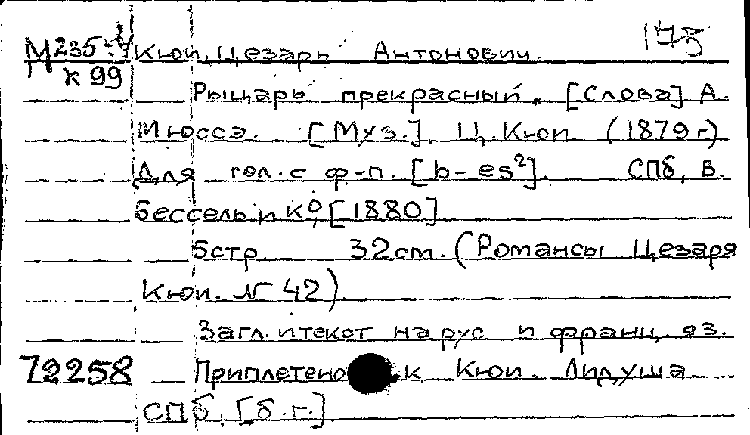 М235-4 Кюи, Цезарь Антонович. 175
К 99
Рыцарь прекрасный. [Слова] А.
Мюссэ. [Муз.] Ц. Кюи (1879 г.)
Для гол. с ф-п. [b-es²]. СПб, В.
Бессель и К⁰, [1880]
5стр 32см. (Романсы Цезаря
Кюи. № 42)
Загл. и текст на рус и франц. яз.
72258 Приплетено к Кюи. Лидуша
СПб, [б.г.]